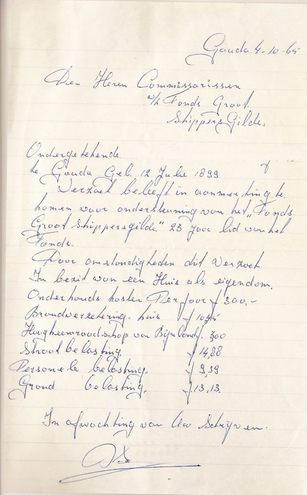 Gouda 4-10-65
Den Heren Commissarissen
v/h Fonds Groot
Schippers Gilde.
Ondergetekende
te Gouda Geb. 12 Julie 1899
Verzoek beleeft in aanmerking te
komen voor ondersteuning van het "Fonds
Groot Schippersgilde" 23 Jaar lid van het
Fonds.
Door omstandigheden dit Verzoek
In bezit van een Huis als eigendom.
Onderhouds kosten Per Jaar f 300,-
Brandverzekering. huis f
Hoogheemraadschap van Rijnland.
Straat belasting. f 14,88
Personele belasting. f 9,39
Grond belasting. f 13,13.
In afwachting van Uw Schrijven.